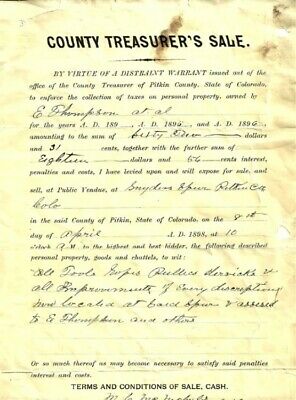 COUNTY TREASURER'S SALE.
BY VIRTUE OF A DISTRAINT WARRANT issued out of the
office of the County Treasurer of Pitkin County, State of Colorado,
to enforce the collection of taxes on personal property, owned by
E Thompson et al
for the years A. D. 189 A. D. 1895, and A. D. 1896
amounting to the sum of Sixty One dollars
and 31 cents, together with the further sum of
Eighteen dollars and 56 cents interest,
penalties and costs, I have levied upon and will expose for sale, and
sell, at Public Vendue, at Snyders Spur Pitkin Co
Colo
in the said County of Pitkin, State of Colorado, on the 8th
day of April A. D. 1898, at 10
o'clock A.M to the highest and best bidder, the following described
personal property, goods and chattels, to wit:
All Tools Ropes Pullies &
all Improvements of Every discreption
now located at Said Spur & assessed
to E Thompson and others
Or so much thereof as may become necessary to satisfy said penalties
interest and costs.
TERMS AND CONDITIONS OF SALE, CASH.